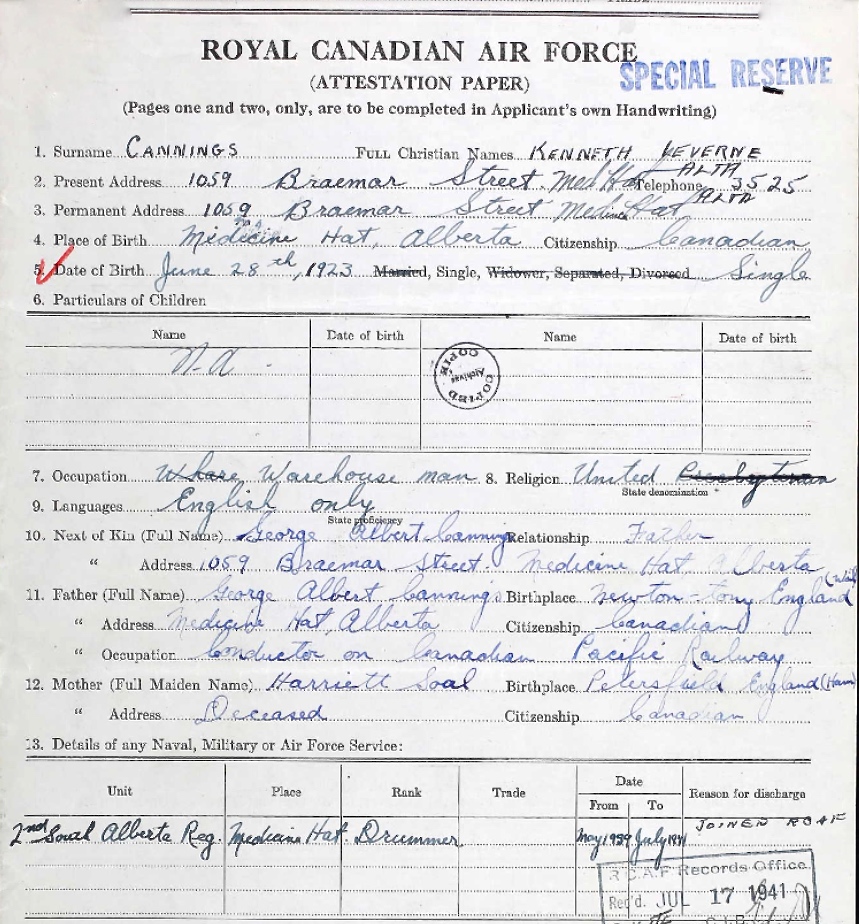 ROYAL CANADIAN AIR FORCE
SPECIAL RESERVE
(ATTESTATION PAPER)
(Pages one and two, only, are to be completed in Applicant's own Handwriting)
1. Surname CANNINGS FULL Christian Names KENNETH LEVERNE
2. Present Address 1059 Braemar Street. Med Hat ALTA Telephone 3525
3. Permanent Address 1059 Braemar Street Medicine Hat ALTA
4. Place of Birth Medicine Hat, Alberta Citizenship Canadian
5. Date of Birth June 28th, 1923 Married, Single, Widower, Separated, Divorced Single
6. Particulars of Children
Name Date of birth Name Date of birth
N.A.
COPIED Archives COPIE
7. Occupation Whare Warehouse man 8. Religion United Presbyterian
State denomination
9. Languages English only
State proficiency
10. Next of Kin (Full Name) George Albert Cannings Relationship Father
" Address 1059 Braemar Street. Medicine Hat Alberta
11. Father (Full Name) George Albert Cannings Birthplace Newton-tony England
" Address Medicine Hat, Alberta Citizenship Canadian
" Occupation Conductor on Canadian Pacific Railway
12. Mother (Full Maiden Name) Harriett Soal Birthplace Petersfield England (Ham)
" Address Deceased Citizenship Canadian
13. Details of any Naval, Military or Air Force Service:
Unit Place Rank Trade Date Reason for discharge
From To
2nd South Alberta Reg. Medicine Hat. Drummer May 1939 July 1941 JOINED RCAF
R.C.A.F Records Office
Rec'd. JUL 17 1941